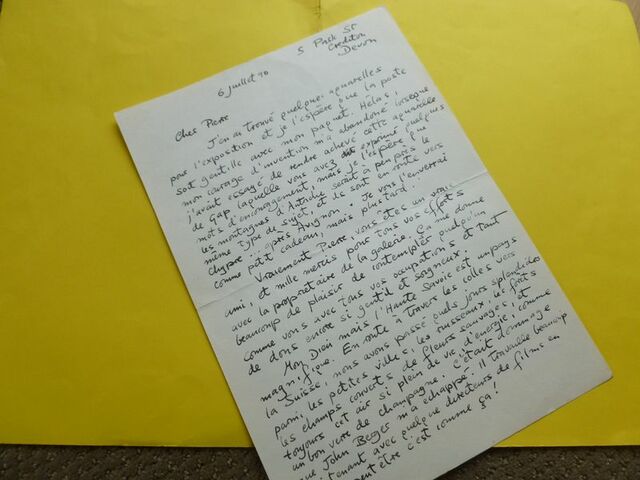 5 Park St
Crediton
Devon
6 Juillet 90
Cher Pierre
J'en ai trouvé quelques aquarelles
pour l'exposition et je l'espère que la poste
soit gentille avec mon paquet. Hélas,
mon courage d'invention m'a abandoné lorseque
j'avait essayé de rendre achevé cette aquarelle
de Gap, laquelle vous avez exprimé quelques
mots d'encouragement, mais je l'espère que
les montagnes d'Autriche serait à peu près le
même type de sujet, et ils sont en route vers
Chypre .. après Avignon. Je vous l'enverrai
comme petit cadeau, mais plus tard...
Vraiement Pierre, vous êtes un vrais
ami, et mille mercis pour tous vos efforts
avec la propriétaire de la galerie. Ça me donne
beaucoup de plaisir de contempler quelqu'un
comme vous avec tous vos occupations et tant
de dons encore si gentil et soigneux.
Mon Dieu mais l'Haute Savoie est un pays
magnifique. En route à travers les colles vers
la Suisse, nous avons passé quels jours splendides
parmi, les petites villes, les ruisseaux, les forêts
les champs couverts de fleurs sauvages, et
toujours cet air si plein de vie, d'energie, comme
un bon verre de champagne. C'était dommage
que John Berger m'a echappé. Il travaille beaucoup
maintenant avec quelque directeurs de films en
peut être c'est comme ça!